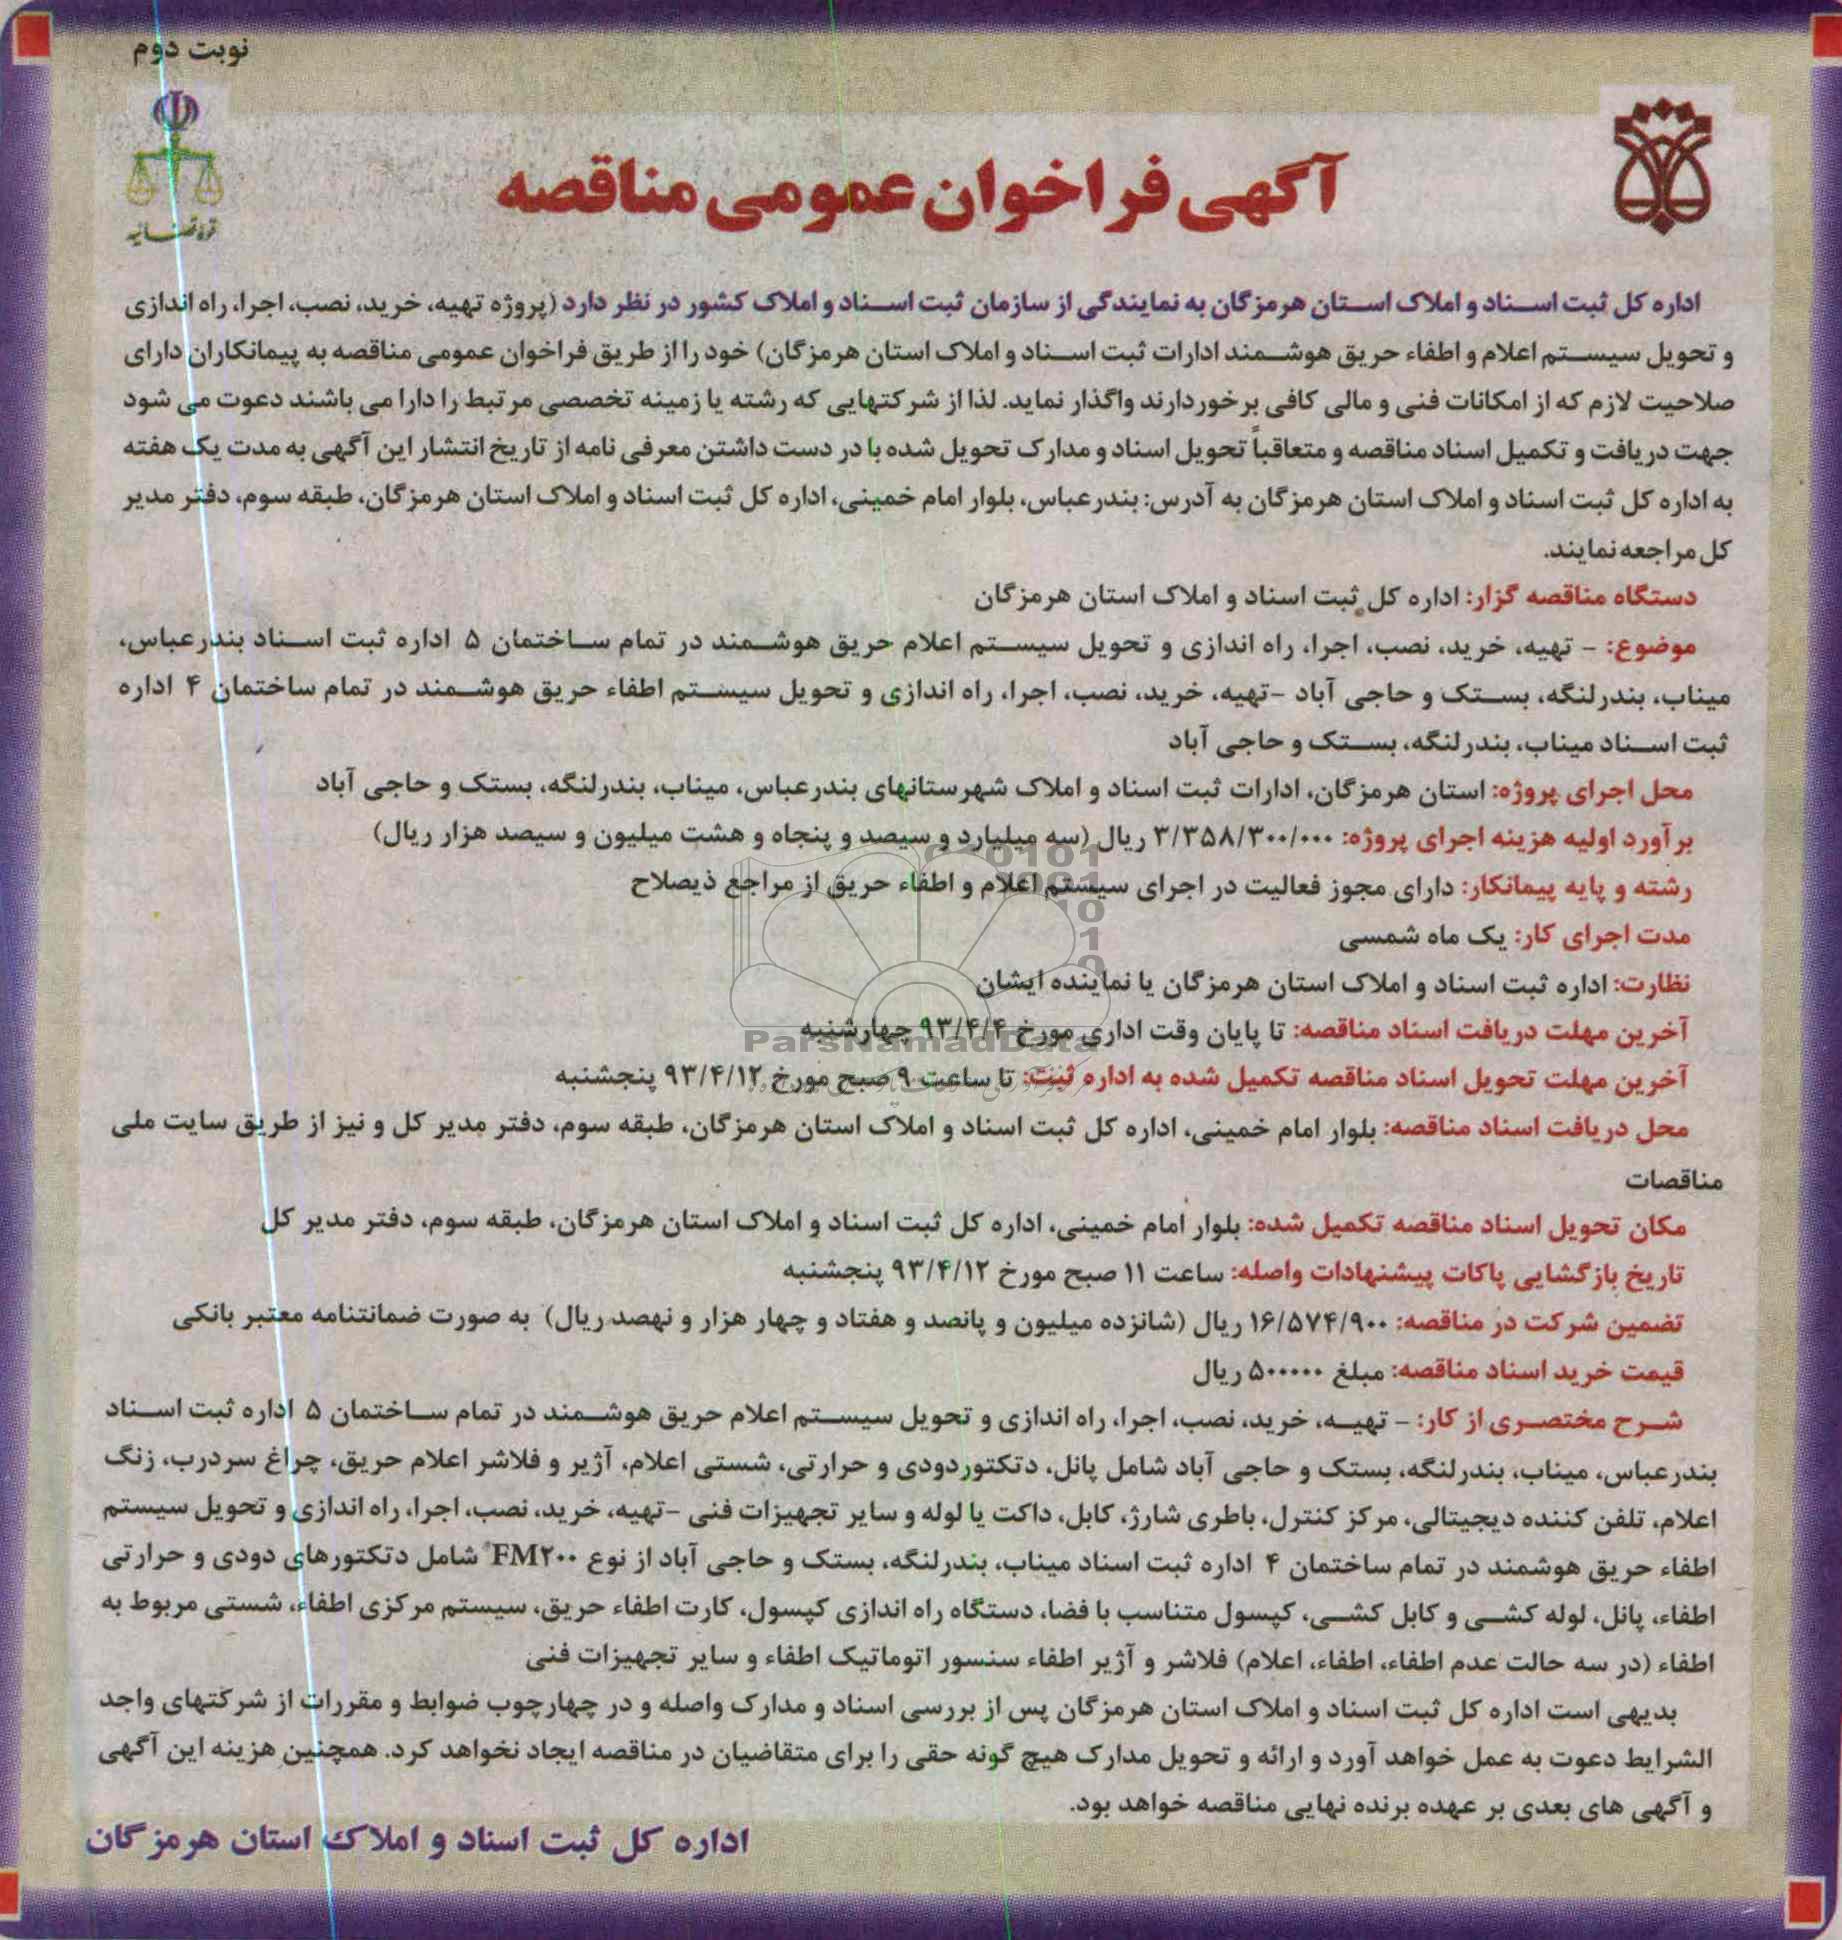 نوبت دوم
قوه قضائیه
آگهی فراخوان عمومی مناقصه
اداره کل ثبت اسناد و املاک استان هرمزگان به نمایندگی از سازمان ثبت اسناد و املاک کشور در نظر دارد (پروژه تهیه، خرید، نصب، اجرا، راه اندازی
و تحویل سیستم اعلام و اطفاء حریق هوشمند ادارات ثبت اسناد و املاک استان هرمزگان) خود را از طریق فراخوان عمومی مناقصه به پیمانکاران دارای
صلاحیت لازم که از امکانات فنی و مالی کافی برخوردارند واگذار نماید. لذا از شرکتهایی که رشته یا زمینه تخصصی مرتبط را دارا می باشند دعوت می شود
جهت دریافت و تکمیل اسناد مناقصه و متعاقباً تحویل اسناد و مدارک تحویل شده با در دست داشتن معرفی نامه از تاریخ انتشار این آگهی به مدت یک هفته
به اداره کل ثبت اسناد و املاک استان هرمزگان به آدرس: بندرعباس، بلوار امام خمینی، اداره کل ثبت اسناد و املاک استان هرمزگان، طبقه سوم، دفتر مدیر
کل مراجعه نمایند.
دستگاه مناقصه گزار: اداره کل ثبت اسناد و املاک استان هرمزگان
موضوع: - تهیه، خرید، نصب، اجرا، راه اندازی و تحویل سیستم اعلام حریق هوشمند در تمام ساختمان ۵ اداره ثبت اسناد بندرعباس،
میناب، بندرلنگه، بستک و حاجی آباد -تهیه، خرید، نصب، اجرا، راه اندازی و تحویل سیستم اطفاء حریق هوشمند در تمام ساختمان ۴ اداره
ثبت اسناد میناب، بندرلنگه، بستک و حاجی آباد
محل اجرای پروژه: استان هرمزگان، ادارات ثبت اسناد و املاک شهرستانهای بندرعباس، میناب، بندرلنگه، بستک و حاجی آباد
برآورد اولیه هزینه اجرای پروژه: ۳/۳۵۸/۳۰۰/۰۰۰ ریال (سه میلیارد و سیصد و پنجاه و هشت میلیون و سیصد هزار ریال)
رشته و پایه پیمانکار: دارای مجوز فعالیت در اجرای سیستم اعلام و اطفاء حریق از مراجع ذیصلاح
مدت اجرای کار: یک ماه شمسی
نظارت: اداره ثبت اسناد و املاک استان هرمزگان یا نماینده ایشان
آخرین مهلت دریافت اسناد مناقصه: تا پایان وقت اداری مورخ ۹۳/۴/۴ چهارشنبه
ParsNamadData
آخرین مهلت تحویل اسناد مناقصه تکمیل شده به اداره ثبت: تا ساعت ۹ صبح مورخ ۹۳/۴/۱۲ پنجشنبه
محل دریافت اسناد مناقصه: بلوار امام خمینی، اداره کل ثبت اسناد و املاک استان هرمزگان، طبقه سوم، دفتر مدیر کل و نیز از طریق سایت ملی
مناقصات
مکان تحویل اسناد مناقصه تکمیل شده: بلوار امام خمینی، اداره کل ثبت اسناد و املاک استان هرمزگان، طبقه سوم، دفتر مدیر کل
تاریخ بازگشایی پاکات پیشنهادات واصله: ساعت ۱۱ صبح مورخ ۹۳/۴/۱۲ پنجشنبه
تضمین شرکت در مناقصه: ۱۶/۵۷۴/۹۰۰ ریال (شانزده میلیون و پانصد و هفتاد و چهار هزار و نهصد ریال) به صورت ضمانتنامه معتبر بانکی
قیمت خرید اسناد مناقصه: مبلغ ۵۰۰۰۰۰ ریال
شرح مختصری از کار: - تهیه، خرید، نصب، اجرا، راه اندازی و تحویل سیستم اعلام حریق هوشمند در تمام ساختمان ۵ اداره ثبت اسناد
بندرعباس، میناب، بندرلنگه، بستک و حاجی آباد شامل پانل، دتکتوردودی و حرارتی، شستی اعلام، آژیر و فلاشر اعلام حریق، چراغ سردرب، زنگ
اعلام، تلفن کننده دیجیتالی، مرکز کنترل، باطری شارژ، کابل، داکت یا لوله و سایر تجهیزات فنی -تهیه، خرید، نصب، اجرا، راه اندازی و تحویل سیستم
اطفاء حریق هوشمند در تمام ساختمان ۴ اداره ثبت اسناد میناب، بندرلنگه، بستک و حاجی آباد از نوع FM۲۰۰ شامل دتکتورهای دودی و حرارتی
اطفاء، پانل، لوله کشی و کابل کشی، کپسول متناسب با فضا، دستگاه راه اندازی کپسول، کارت اطفاء حریق، سیستم مرکزی اطفاء، شستی مربوط به
اطفاء (در سه حالت عدم اطفاء، اطفاء، اعلام) فلاشر و آژیر اطفاء سنسور اتوماتیک اطفاء و سایر تجهیزات فنی
بدیهی است اداره کل ثبت اسناد و املاک استان هرمزگان پس از بررسی اسناد و مدارک واصله و در چهارچوب ضوابط و مقررات از شرکتهای واجد
الشرایط دعوت به عمل خواهد آورد و ارائه و تحویل مدارک هیچ گونه حقی را برای متقاضیان در مناقصه ایجاد نخواهد کرد. همچنین هزینه این آگهی
و آگهی های بعدی بر عهده برنده نهایی مناقصه خواهد بود.
اداره کل ثبت اسناد و املاک استان هرمزگان